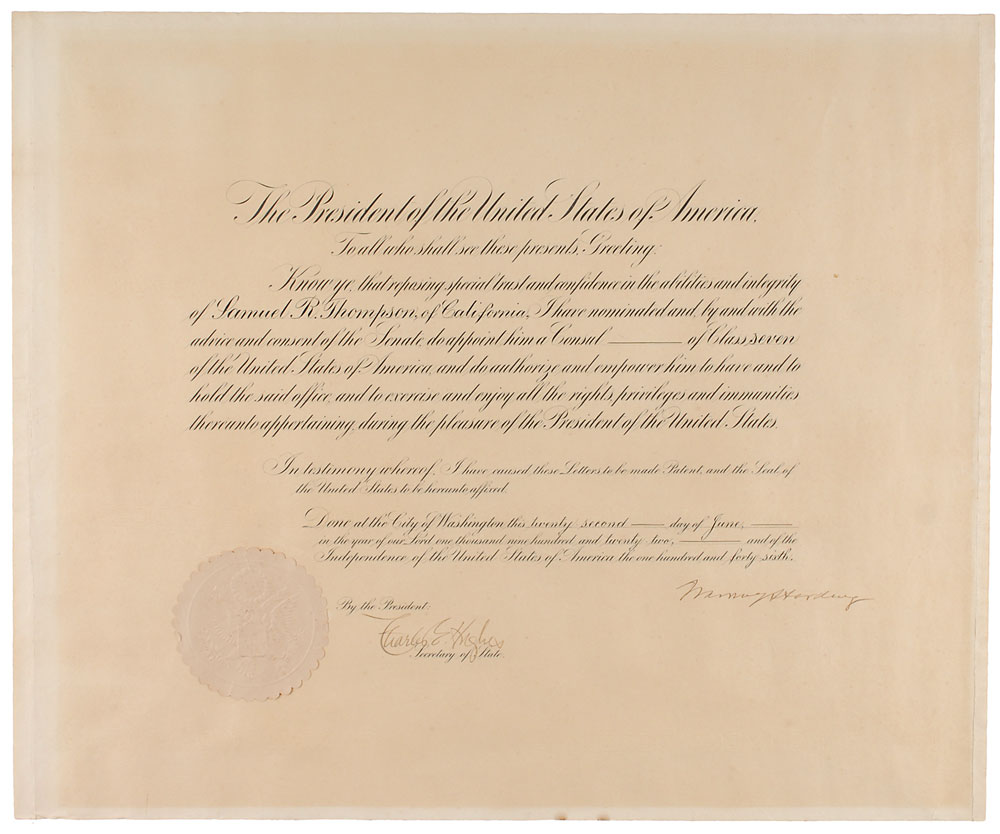 The President of the United States of America.
To all who shall see these presents, Greeting:
Know ye, that reposing special trust and confidence in the abilities and integrity
of Samuel R. Thompson, of California, I have nominated and, by and with the
advice and consent of the Senate, do appoint him a Consul of Class seven
of the United States of America, and do authorize and empower him to have and to
hold the said office, and to exercise and enjoy all the rights, privileges and immunities
thereunto appertaining, during the pleasure of the President of the United States.
In testimony whereof, I have caused these Letters to be made Patent, and the Seal of
the United States to be hereunto affixed.
Done at the City of Washington this twenty second day of June,
in the year of our Lord one thousand nine hundred and twenty two, and of the
Independence of the United States of America the one hundred and forty sixth.
Warren G Harding
By the President:
Charles E. Hughes
Secretary of State.